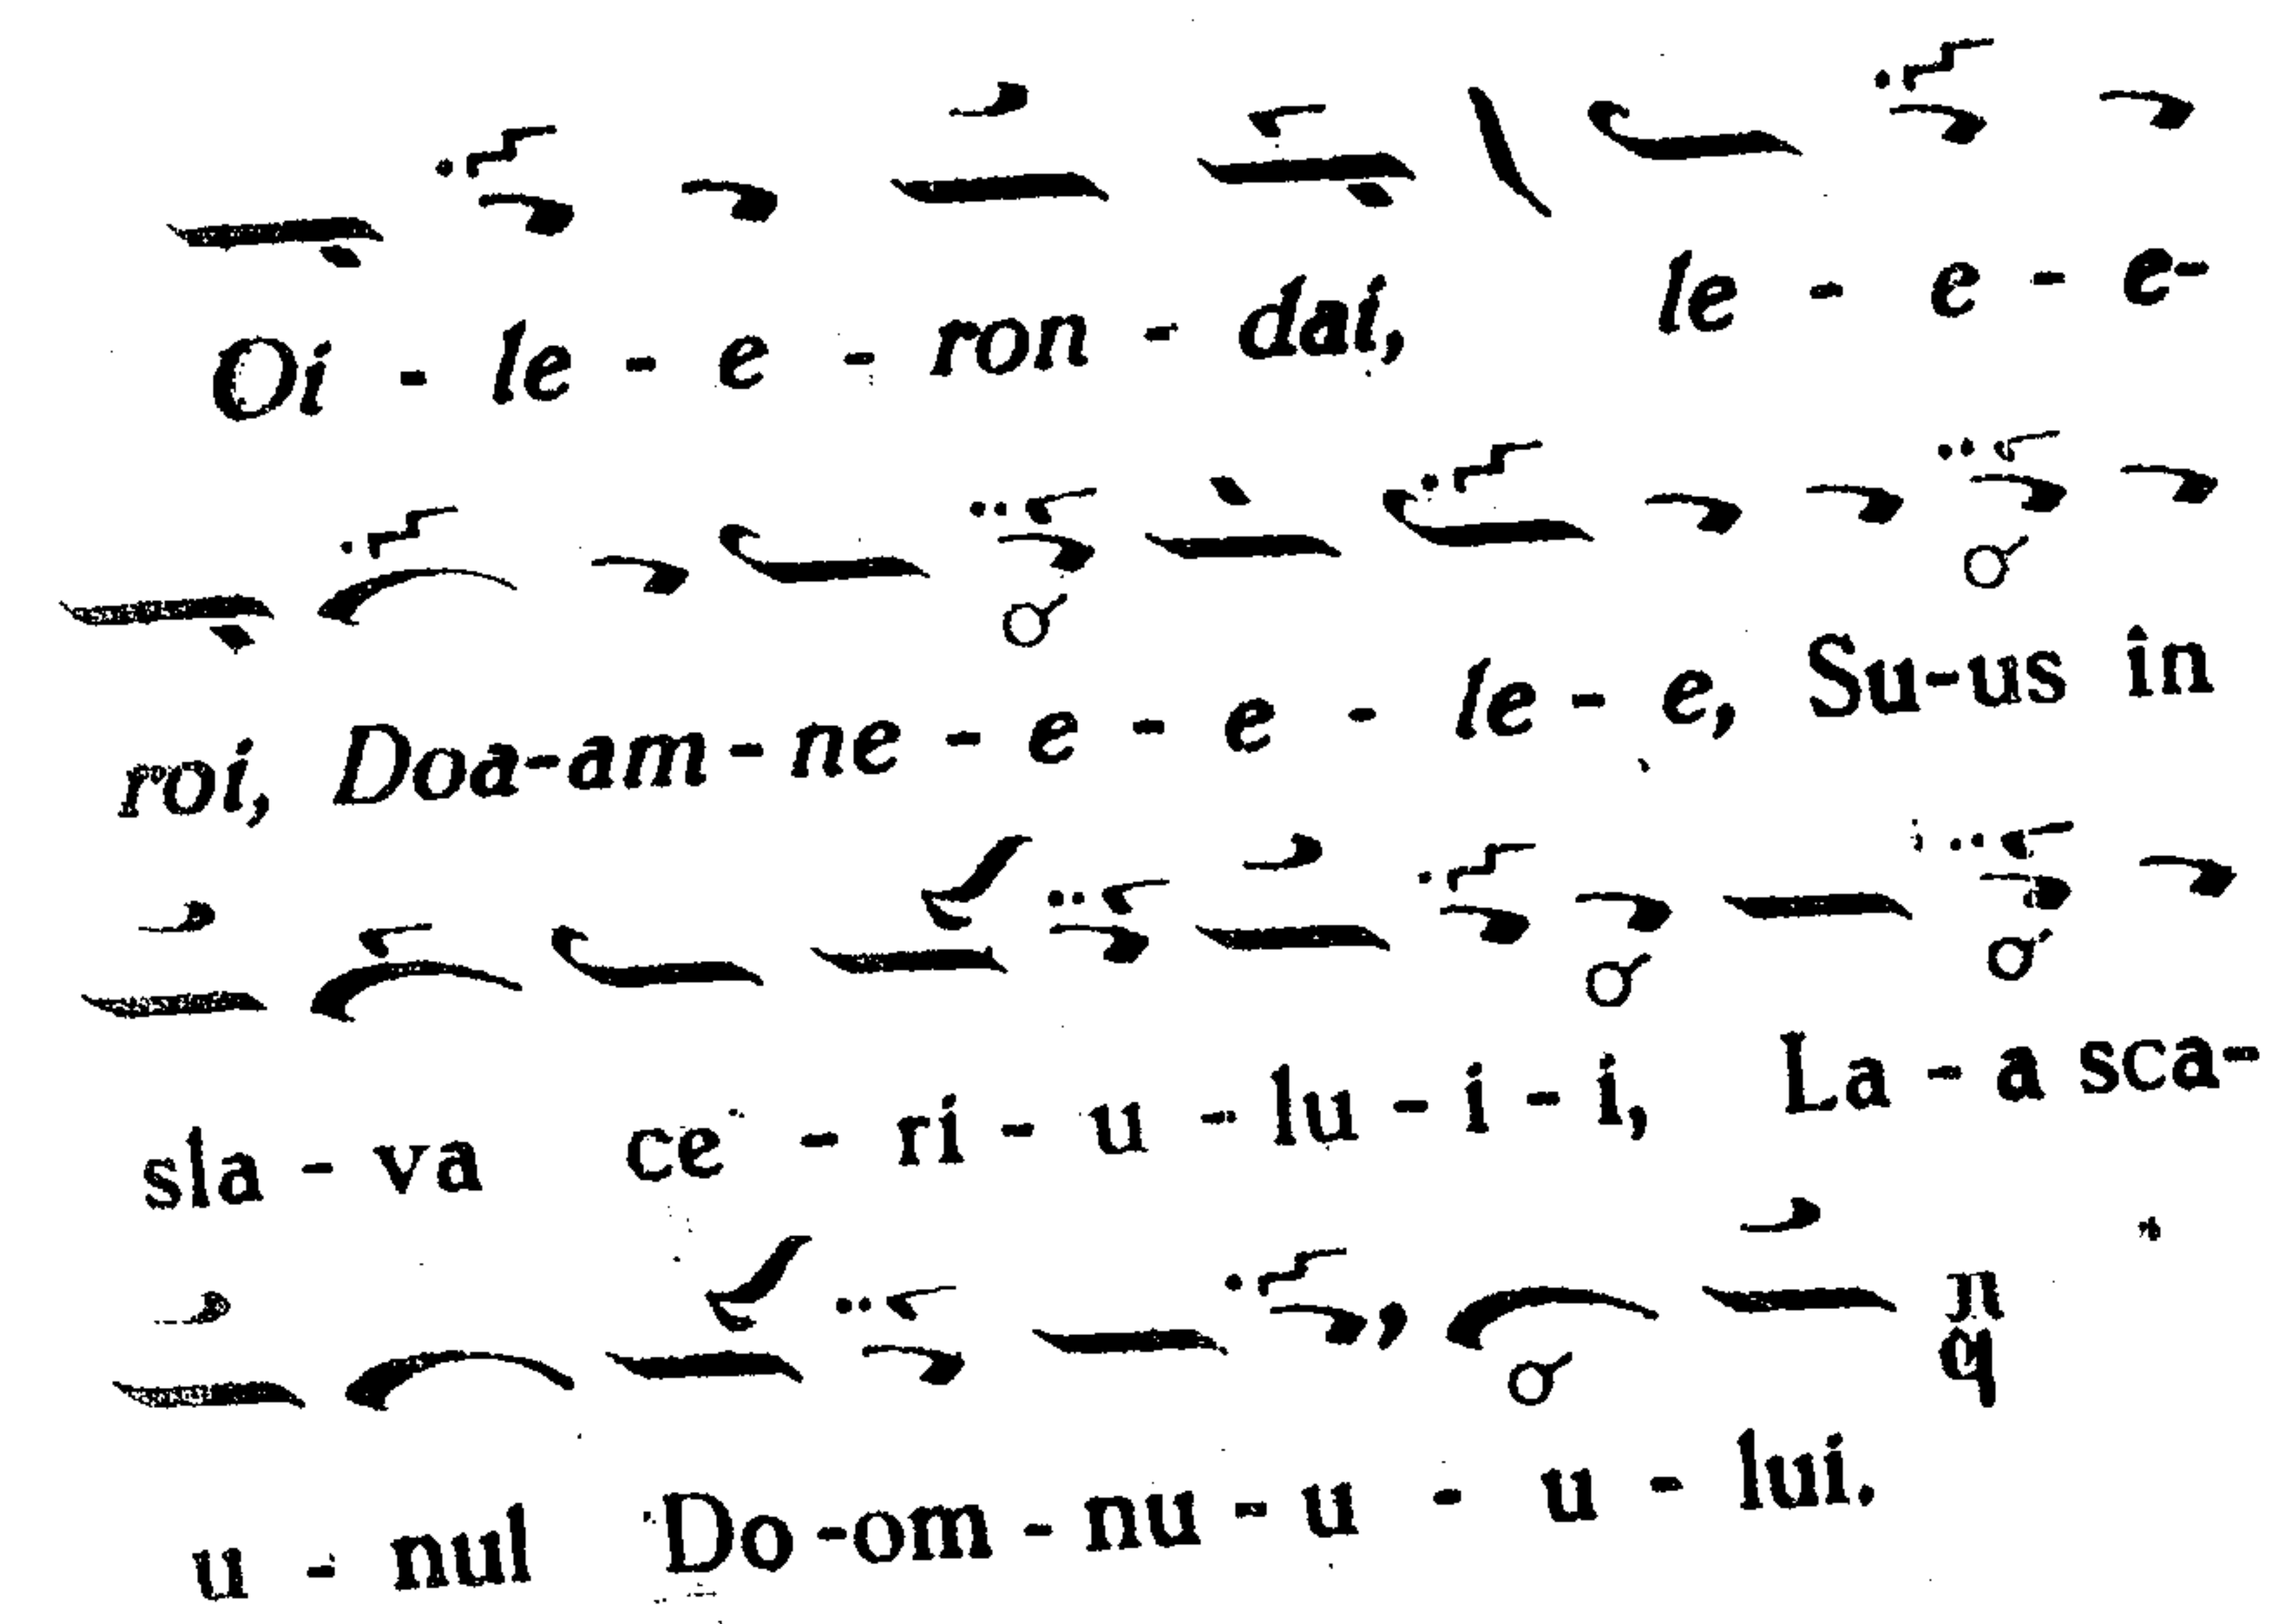 Oi - le - e - ron - dai, le - e - e-
roi, Doa-am - ne - e - e - le - e, Su-us in
sla - va ce - ri - u - lu - i - i, La - a sca-
u - nul Do-om - nu - u - u - lui.